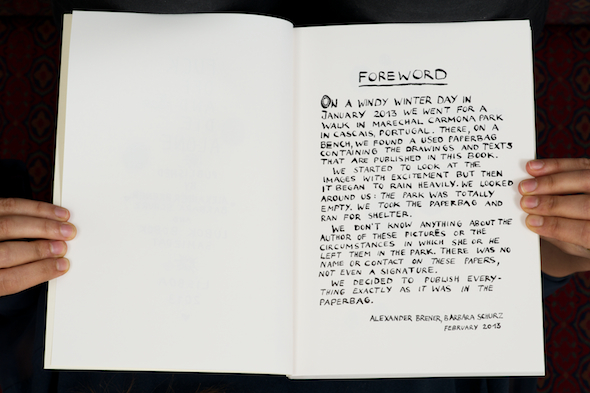 FOREWORD
ON A WINDY WINTER DAY IN
JANUARY 2013 WE WENT FOR A
WALK IN MARECHAL CARMONA PARK
IN CASCAIS, PORTUGAL. THERE, ON A
BENCH, WE FOUND A USED PAPERBAG
CONTAINING THE DRAWINGS AND TEXTS
THAT ARE PUBLISHED IN THIS BOOK.
WE STARTED TO LOOK AT THE
IMAGES WITH EXCITEMENT BUT THEN
IT BEGAN TO RAIN HEAVILY. WE LOOKED
AROUND US: THE PARK WAS TOTALLY
EMPTY. WE TOOK THE PAPERBAG AND
RAN FOR SHELTER.
WE DON'T KNOW ANYTHING ABOUT THE
AUTHOR OF THESE PICTURES OR THE
CIRCUMSTANCES IN WHICH SHE OR HE
LEFT THEM IN THE PARK. THERE WAS NO
NAME OR CONTACT ON THESE PAPERS,
NOT EVEN A SIGNATURE.
WE DECIDED TO PUBLISH EVERY-
THING EXACTLY AS IT WAS IN THE
PAPERBAG.
ALEXANDER BRENER, BARBARA SCHURZ
FEBRUARY 2013